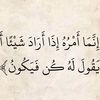 إِنَّمَا أَمْرُهُ إِذَا أَرَادَ شَيْئًا أَ
يَقُولَ لَهُ كُن فَيَكُونُ﴾